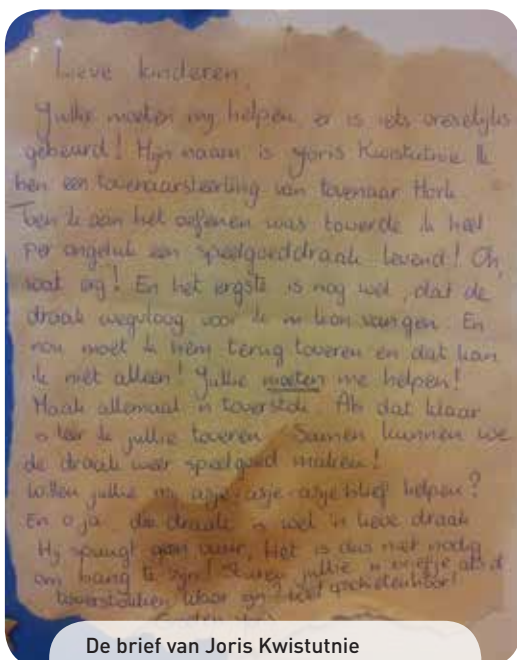 Lieve kinderen,
Jullie moeten mij helpen, er is iets vreselijks
gebeurd! Mijn naam is Joris Kwistutnie Ik
ben een tovenaarsleerling van tovenaar Hork.
Toen ik aan het oefenen was toverde ik heel
per ongeluk een speelgoeddraak levend! Oh,
wat erg! En het ergste is nog wel, dat de
draak wegvloog voor ik 'm kon vangen. En
nou moet ik hem terug toveren en dat kan
ik niet alleen! Jullie moeten me helpen!
Maak allemaal 'n toverstok. Als dat klaar
is leer ik jullie toveren. Samen kunnen we
de draak weer speelgoed maken!
Willen jullie mij asje-asje-asjeblief helpen?
En o ja die draak is wel 'n lieve draak
Hij spuugt geen vuur. Het is dus niet nodig
om bang te zijn! jullie 'n briefje als de
toverstokken klaar zijn
Groeten Joris
De brief van Joris Kwistutnie